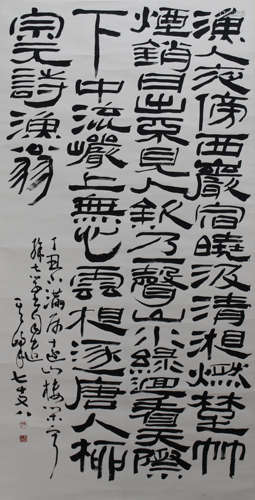 漁人夜傍西巖宿曉汲清湘燃楚竹
煙銷日出不見人欸乃一聲山水綠迴看天際
下中流巖上無心雲相逐唐人柳
宗元詩漁翁
丁丑小滿